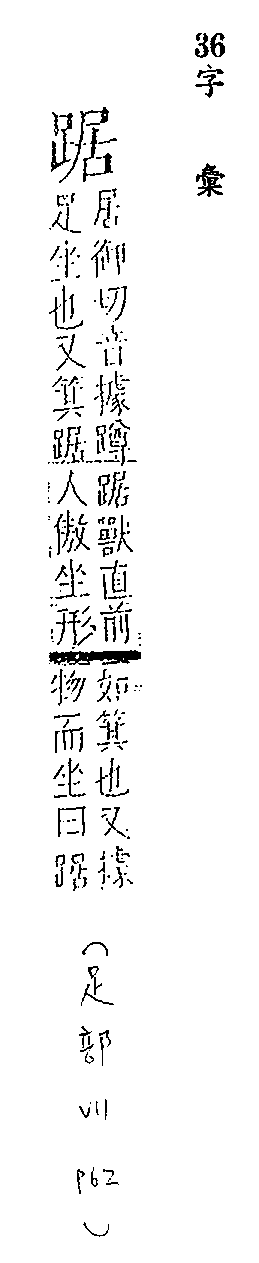 36字彙
踞
居御切音據蹲踞獸直前
足坐也又箕踞人傲坐形
如箕也又據
物而坐曰踞
(足部 VII P62)